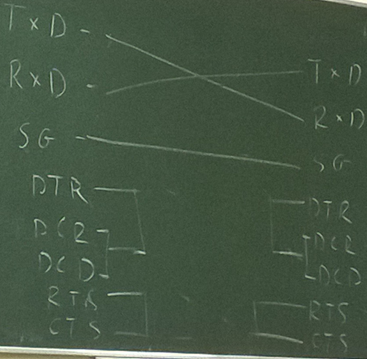 TxD
RxD
SG
DTR
DCR
DCD
RTS
CTS
TxD
RxD
SG
DTR
DCR
DCD
RTS
CTS